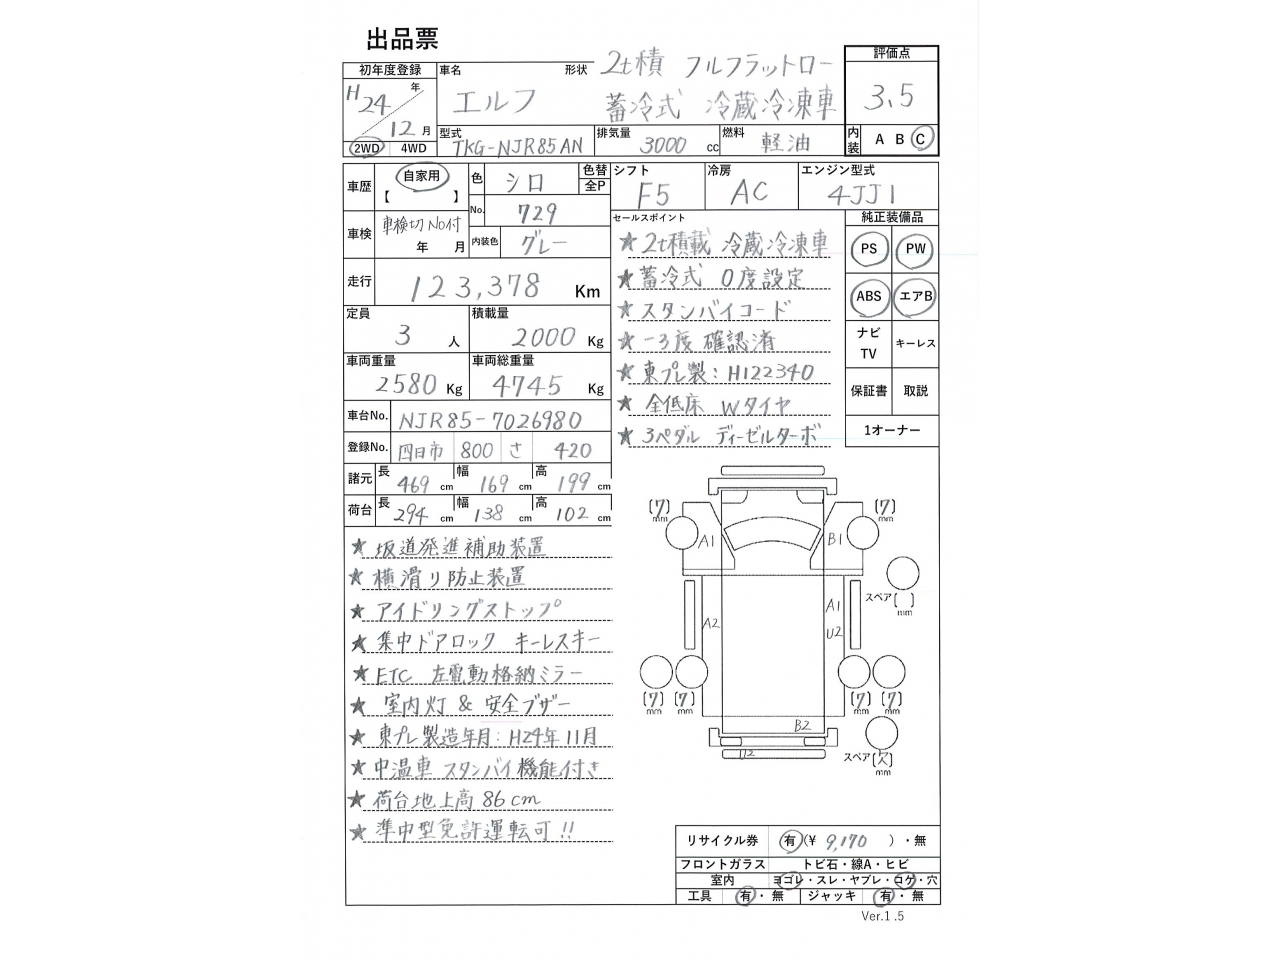 出品票
初年度登録 車名 形状 2t積 フルフラットロー 評価点
H24年 エルフ 蓄冷式 冷蔵冷凍車 3.5
12月
2WD 4WD 型式 TKG-NJR85AN 排気量 3000 cc 燃料 軽油 内装 A B C
車歴 自家用 【 】 色 シロ 色替 全P シフト F5 冷房 AC エンジン型式 4JJ1
No. 729
車検 車検切 No付 年 月 内装色 グレー
走行 123,378 Km
定員 3 人 積載量 2000 Kg
車両重量 2580 Kg 車両総重量 4745 Kg
車台No. NJR85-7026980
登録No. 四日市 800 さ 420
諸元 長 469 cm 幅 169 cm 高 199 cm
荷台 長 294 cm 幅 138 cm 高 102 cm
セールスポイント
★2t積載 冷蔵冷凍車
★蓄冷式 0度設定
★スタンバイコード
★-3度確認済
★東プレ製:H122340
★全低床 Wタイヤ
★3ペダル ディーゼルターボ
純正装備品
PS PW
ABS エアB
ナビ TV キーレス
保証書 取説
1オーナー
★坂道発進補助装置
★横滑り防止装置
★アイドリングストップ
★集中ドアロック キーレスキー
★ETC 左電動格納ミラー
★室内灯 & 安全ブザー
★東プレ製造年月:H24年11月
★中温車 スタンバイ機能付き
★荷台地上高86cm
★準中型免許運転可!!
[7] mm [7] mm
A1 B1
スペア[ ] mm
A1
A2 U2
[7] mm [7] mm [7] mm [7] mm
B2
U2 スペア[欠] mm
リサイクル券 有(¥ 9,170 )・無
フロントガラス トビ石・線A・ヒビ
室内 ヨゴレ・スレ・ヤブレ・コゲ・穴
工具 有・無 ジャッキ 有・無
Ver.1.5